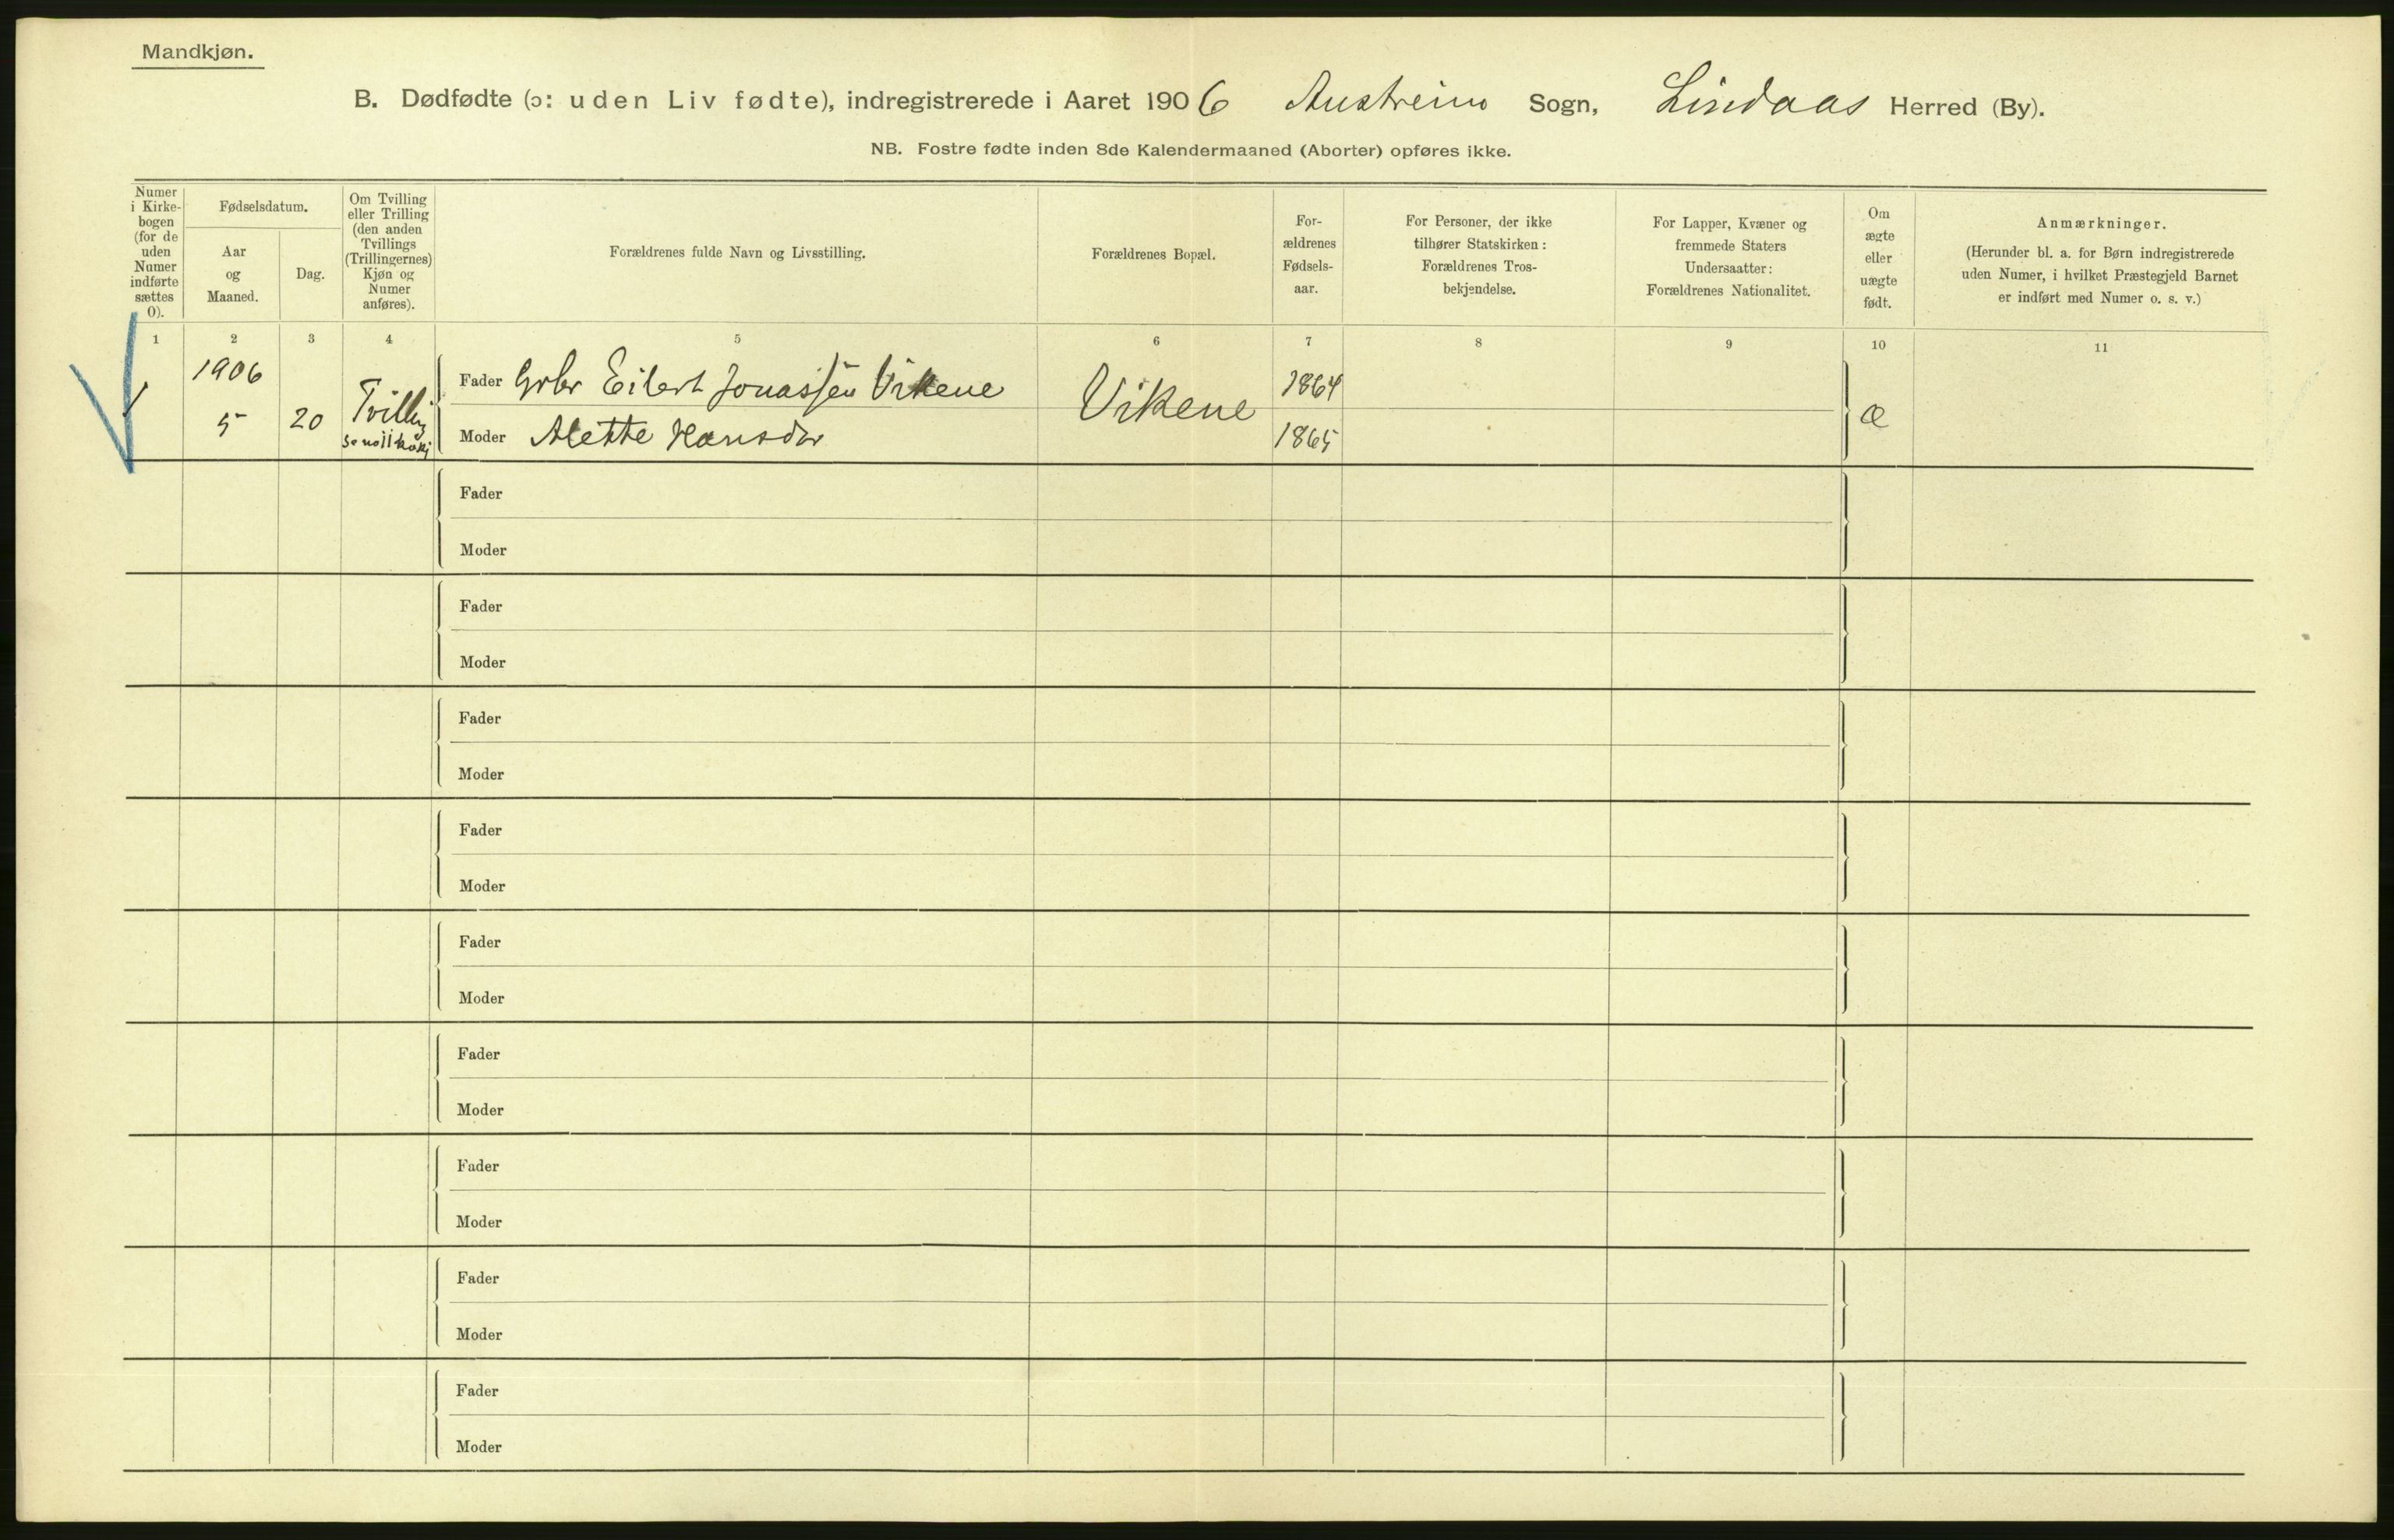 Mandkjøn.
B. Dødfødte (ɔ: uden Liv fødte), indregistrerede i Aaret 1906 Austreim Sogn, Lindaas Herred (By).
NB. Fostre fødte inden 8de Kalendermaaned (Aborter) opføres ikke.
Numer
i Kirke-
bogen
(for de
uden
Numer
indførte
sættes
0).
Fødselsdatum.
Aar
og
Maaned.
Dag.
Om Tvilling
eller Trilling
(den anden
Tvillings
(Trillingernes)
Kjøn og
Numer
anføres).
Forældrenes fulde Navn og Livsstilling.
Forældrenes Bopæl.
For-
ældrenes
Fødsels-
aar.
For Personer, der ikke
tilhører Statskirken:
Forældrenes Tros-
bekjendelse.
For Lapper, Kvæner og
fremmede Staters
Undersaatter:
Forældrenes Nationalitet.
Om
ægte
eller
uægte
født.
Anmærkninger.
(Herunder bl. a. for Børn indregistrerede
uden Numer, i hvilket Præstegjeld Barnet
er indført med Numer o. s. v.)
1 2 3 4 5 6 7 8 9 10 11
1906
5 20
Tvillg
Fader Grbr Eilert Jonassen Vikene
Moder Alette Hansdr
Vikene
1864
1865
æ
Fader
Moder
Fader
Moder
Fader
Moder
Fader
Moder
Fader
Moder
Fader
Moder
Fader
Moder
Fader
Moder
Fader
Moder